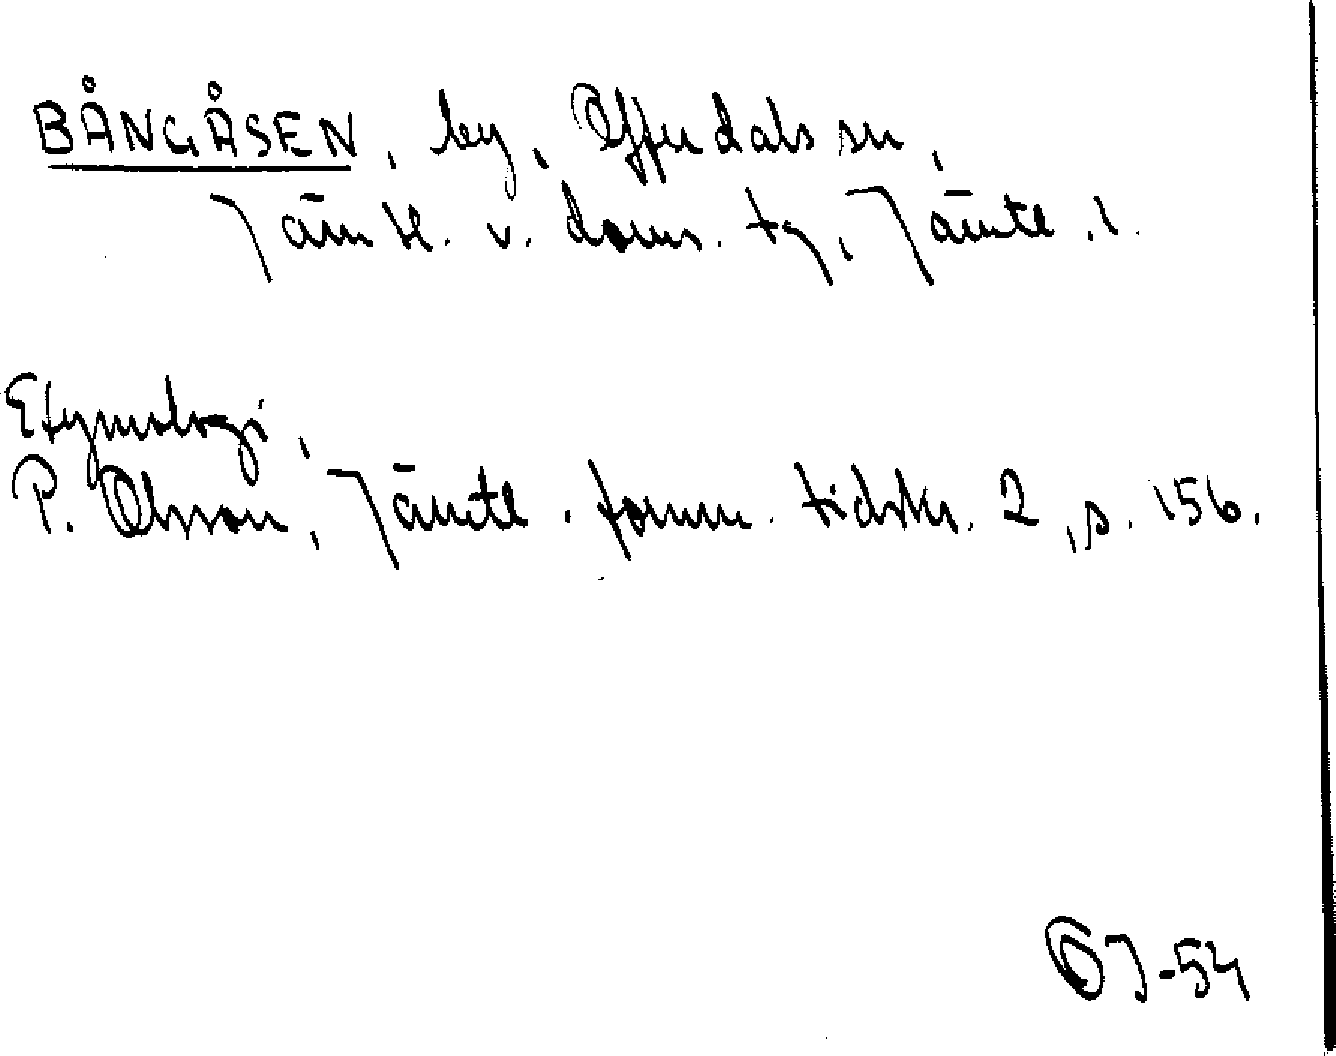 BÅNGÅSEN, by, Offerdals sn,
Jämtl. v. doms. tg, Jämtl. l.
Etymologi,
P. Olsson, Jämtl. fornm. tidskr. 2, s. 156.
OJ-54